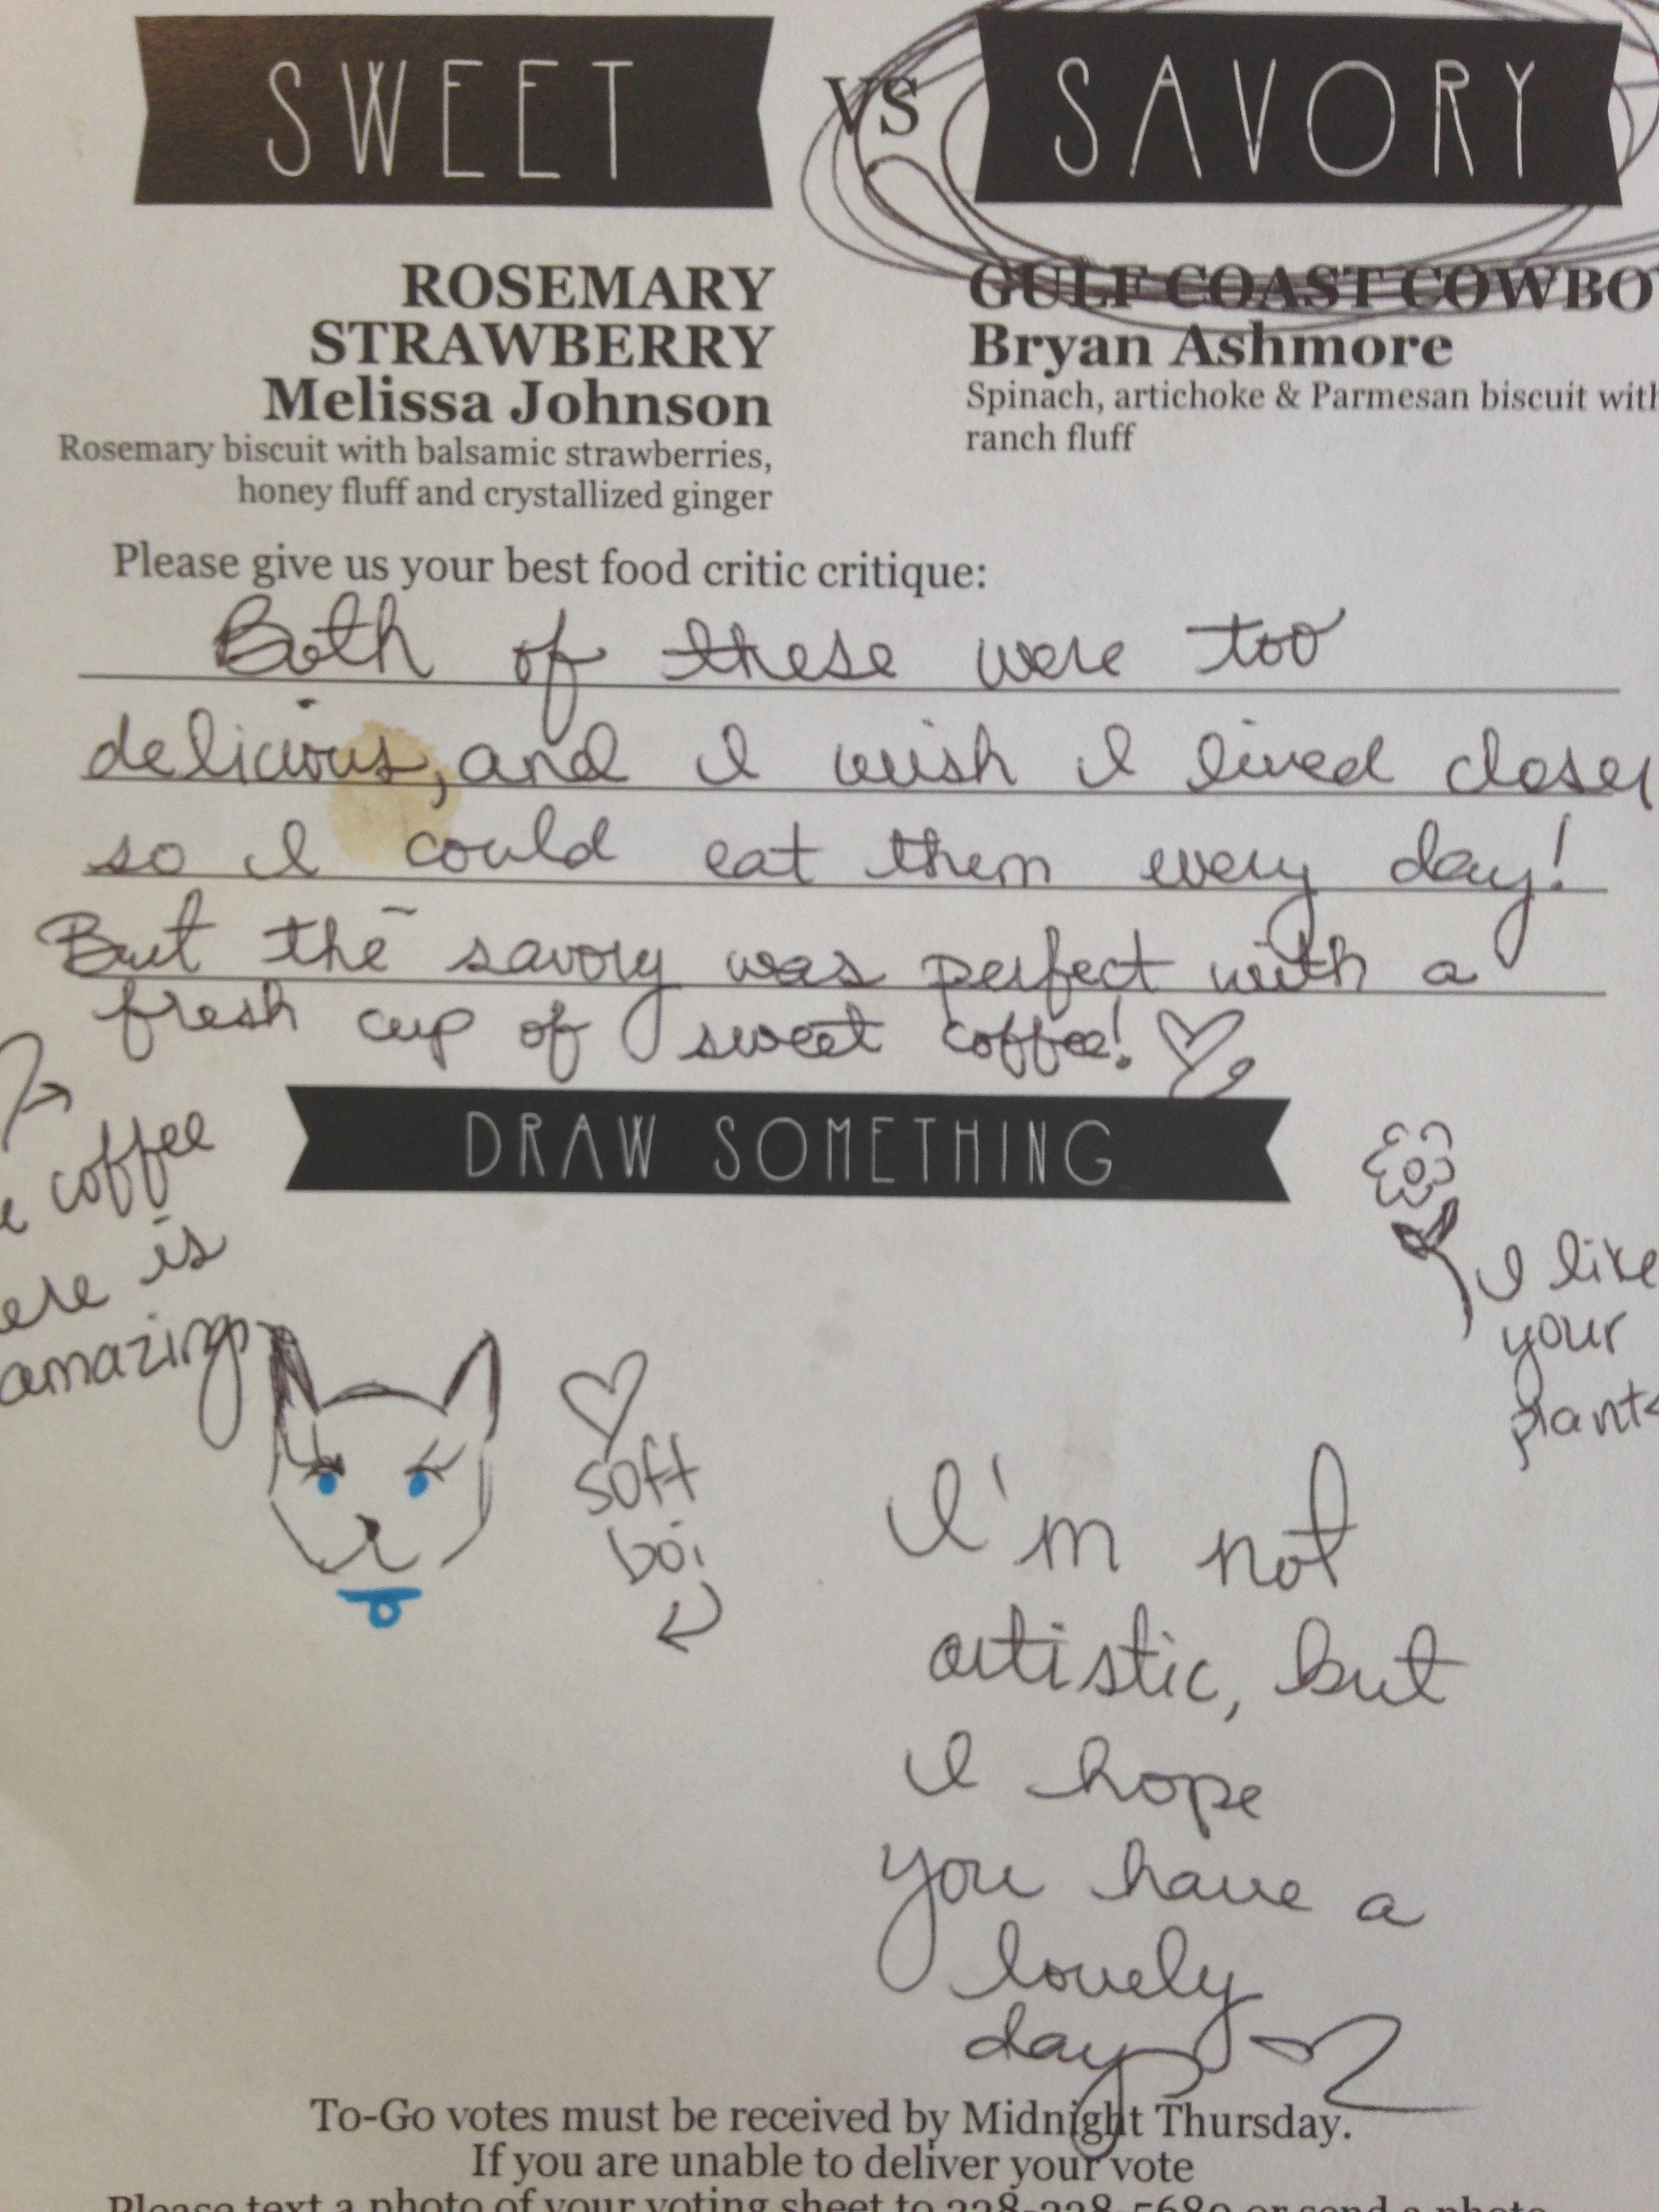 SWEET VS SAVORY
ROSEMARY
STRAWBERRY
Melissa Johnson
Rosemary biscuit with balsamic strawberries,
honey fluff and crystallized ginger
GULF COAST COWBO
Bryan Ashmore
Spinach, artichoke & Parmesan biscuit with
ranch fluff
Please give us your best food critic critique:
Both of these were too
delicious, and I wish I lived closer
so I could eat them every day!
But the savory was perfect with a
fresh cup of sweet coffee!
coffee
is
amazing
DRAW SOMETHING
I like
your
plants
soft
boi
I'm not
artistic, but
I hope
you have a
lovely
day
To-Go votes must be received by Midnight Thursday.
If you are unable to deliver your vote
Please text a photo of your voting sheet to 228-238-5680 or send a photo